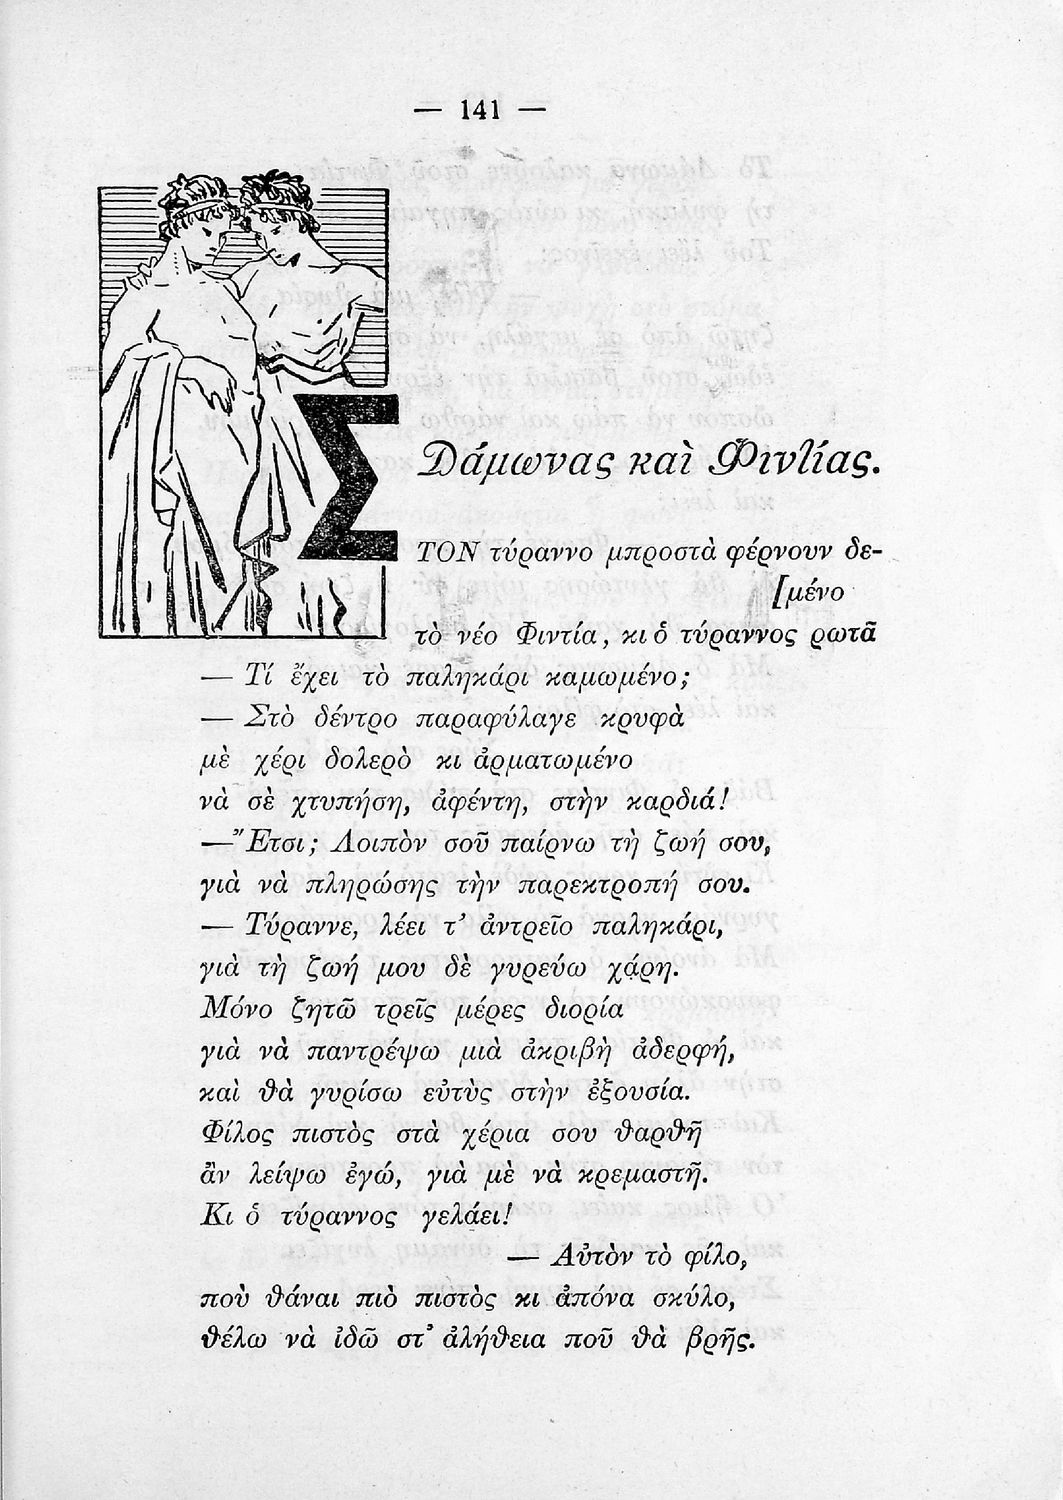 — 141 —
Δάμωνας καὶ Φιντίας.
ΣΤΟΝ τύραννο μπροστὰ φέρνουν δε-
[μένο
τὸ νέο Φιντία, κι ὁ τύραννος ρωτᾶ
— Τί ἔχει τὸ παληκάρι καμωμένο;
— Στὸ δέντρο παραφύλαγε κρυφὰ
μὲ χέρι δολερὸ κι ἀρματωμένο
νὰ σὲ χτυπήση, ἀφέντη, στὴν καρδιά!
—Ἔτσι; Λοιπὸν σοῦ παίρνω τὴ ζωή σου,
γιὰ νὰ πληρώσης τὴν παρεκτροπή σου.
— Τύραννε, λέει τ' ἀντρεῖο παληκάρι,
γιὰ τὴ ζωή μου δὲ γυρεύω χάρη.
Μόνο ζητῶ τρεῖς μέρες διορία
γιὰ νὰ παντρέψω μιὰ ἀκριβὴ ἀδερφή,
καὶ θὰ γυρίσω εὐτὺς στὴν ἐξουσία.
Φίλος πιστὸς στὰ χέρια σου θαρθῆ
ἂν λείψω ἐγώ, γιὰ μὲ νὰ κρεμαστῆ.
Κι ὁ τύραννος γελάει!
— Αὐτὸν τὸ φίλο,
ποὺ θάναι πιὸ πιστὸς κι ἀπόνα σκύλο,
θέλω νὰ ἰδῶ στ' ἀλήθεια ποῦ θὰ βρῆς.